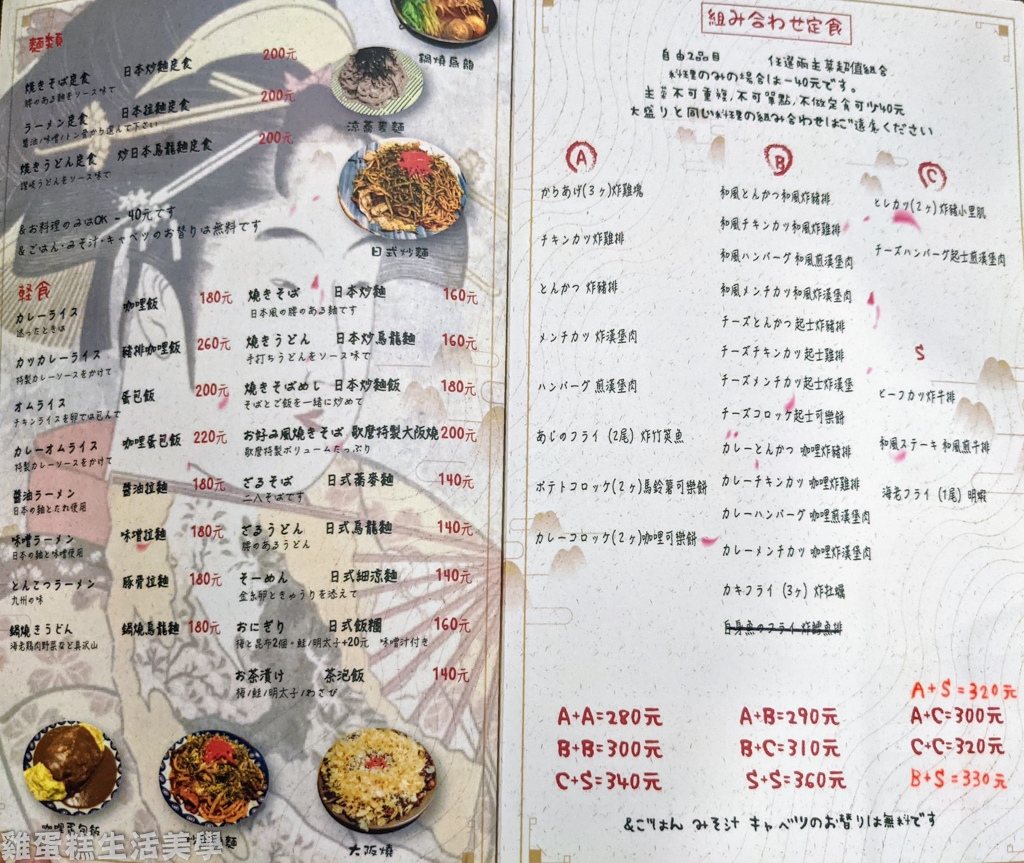 麵類
焼きそば定食 日本炒麵定食 200元
腰のある麺をソース味で
ラーメン定食 日本拉麵定食 200元
醬油/味噌/トン骨から選んで下さい
焼きうどん定食 炒日本烏龍麵定食 200元
讃岐うどんをソース味で
&お料理のみはOK - 40元です
&ごはん・みそ汁・キャベツのお替りは無料です
鍋燒烏龍
涼蕎麥麵
日式炒麵
軽食
カレーライス 咖哩飯 180元
迷ったときは
カツカレーライス 豬排咖哩飯 260元
特製カレーソースをかけて
オムライス 蛋包飯 200元
チキンライスを卵で包んで
カレーオムライス 咖哩蛋包飯 220元
特製カレーソースをかけて
醬油ラーメン 醬油拉麵 180元
日本の麺とたれ使用
味噌ラーメン 味噌拉麵 180元
日本の麺と味噌使用
とんこつラーメン 豚骨拉麵 180元
九州の味
鍋焼きうどん 鍋燒烏龍麵 180元
海老鶏肉野菜など具沢山
焼きそば 日本炒麵 160元
日本風の腰のある麺です
焼きうどん 日本炒烏龍麵 160元
手打ちうどんをソース味で
焼きそばめし 日本炒麵飯 180元
そばとご飯を一緒に炒めて
お好み風焼きそば 歌麿特製大阪燒 200元
歌麿特製ボリュームたっぷり
ざるそば 日式蕎麥麵 140元
二八そばです
ざるうどん 日式烏龍麵 140元
腰のあるうどん
そーめん 日式細涼麵 140元
金糸卵ときゅうりを添えて
おにぎり 日式飯糰 160元
梅と昆布2個・鮭/明太子+20元 味噌汁付き
お茶漬け 茶泡飯 140元
梅/鮭/明太子/わさび
咖哩蛋包飯
麵
大阪燒
雞蛋糕生活美學
組み合わせ定食
自由2品目 任選兩主菜超值組合
料理のみの場合は-40元です。
主菜不可重複,不可單點,不做定食可少40元
大盛りと同じ料理の組み合わせはご遠慮ください
A
からあげ(3ヶ)炸雞塊
チキンカツ 炸雞排
とんかつ 炸豬排
メンチカツ 炸漢堡肉
ハンバーグ 煎漢堡肉
あじのフライ (2尾) 炸竹莢魚
ポテトコロッケ(2ヶ)馬鈴薯可樂餅
カレーコロッケ(2ヶ)咖哩可樂餅
B
和風とんかつ和風炸豬排
和風チキンカツ和風炸雞排
和風ハンバーグ 和風煎漢堡肉
和風メンチカツ和風炸漢堡肉
チーズとんかつ 起士炸豬排
チーズチキンカツ 起士雞排
チーズメンチカツ 起士炸漢堡
チーズコロッケ 起士可樂餅
カレーとんかつ 咖哩炸豬排
カレーチキンカツ 咖哩炸雞排
カレーハンバーグ 咖哩煎漢堡肉
カレーメンチカツ 咖哩炸漢堡肉
カキフライ (3ヶ) 炸牡蠣
白身魚のフライ 炸鱈魚排
C
とレカツ(2ヶ)炸豬小里肌
チーズハンバーグ起士煎漢堡肉
S
ビーフカツ炸牛排
和風ステーキ 和風煎牛排
海老フライ (1尾) 明蝦
A+S=320元
A+A=280元 A+B=290元 A+C=300元
B+B=300元 B+C=310元 C+C=320元
C+S=340元 S+S=360元 B+S=330元
&ごはん みそ汁 キャベツのお替りは無料です